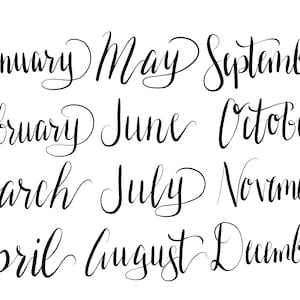 nuary May Septemb
bruary June Octobe
arch July Novem
pril August Decemb